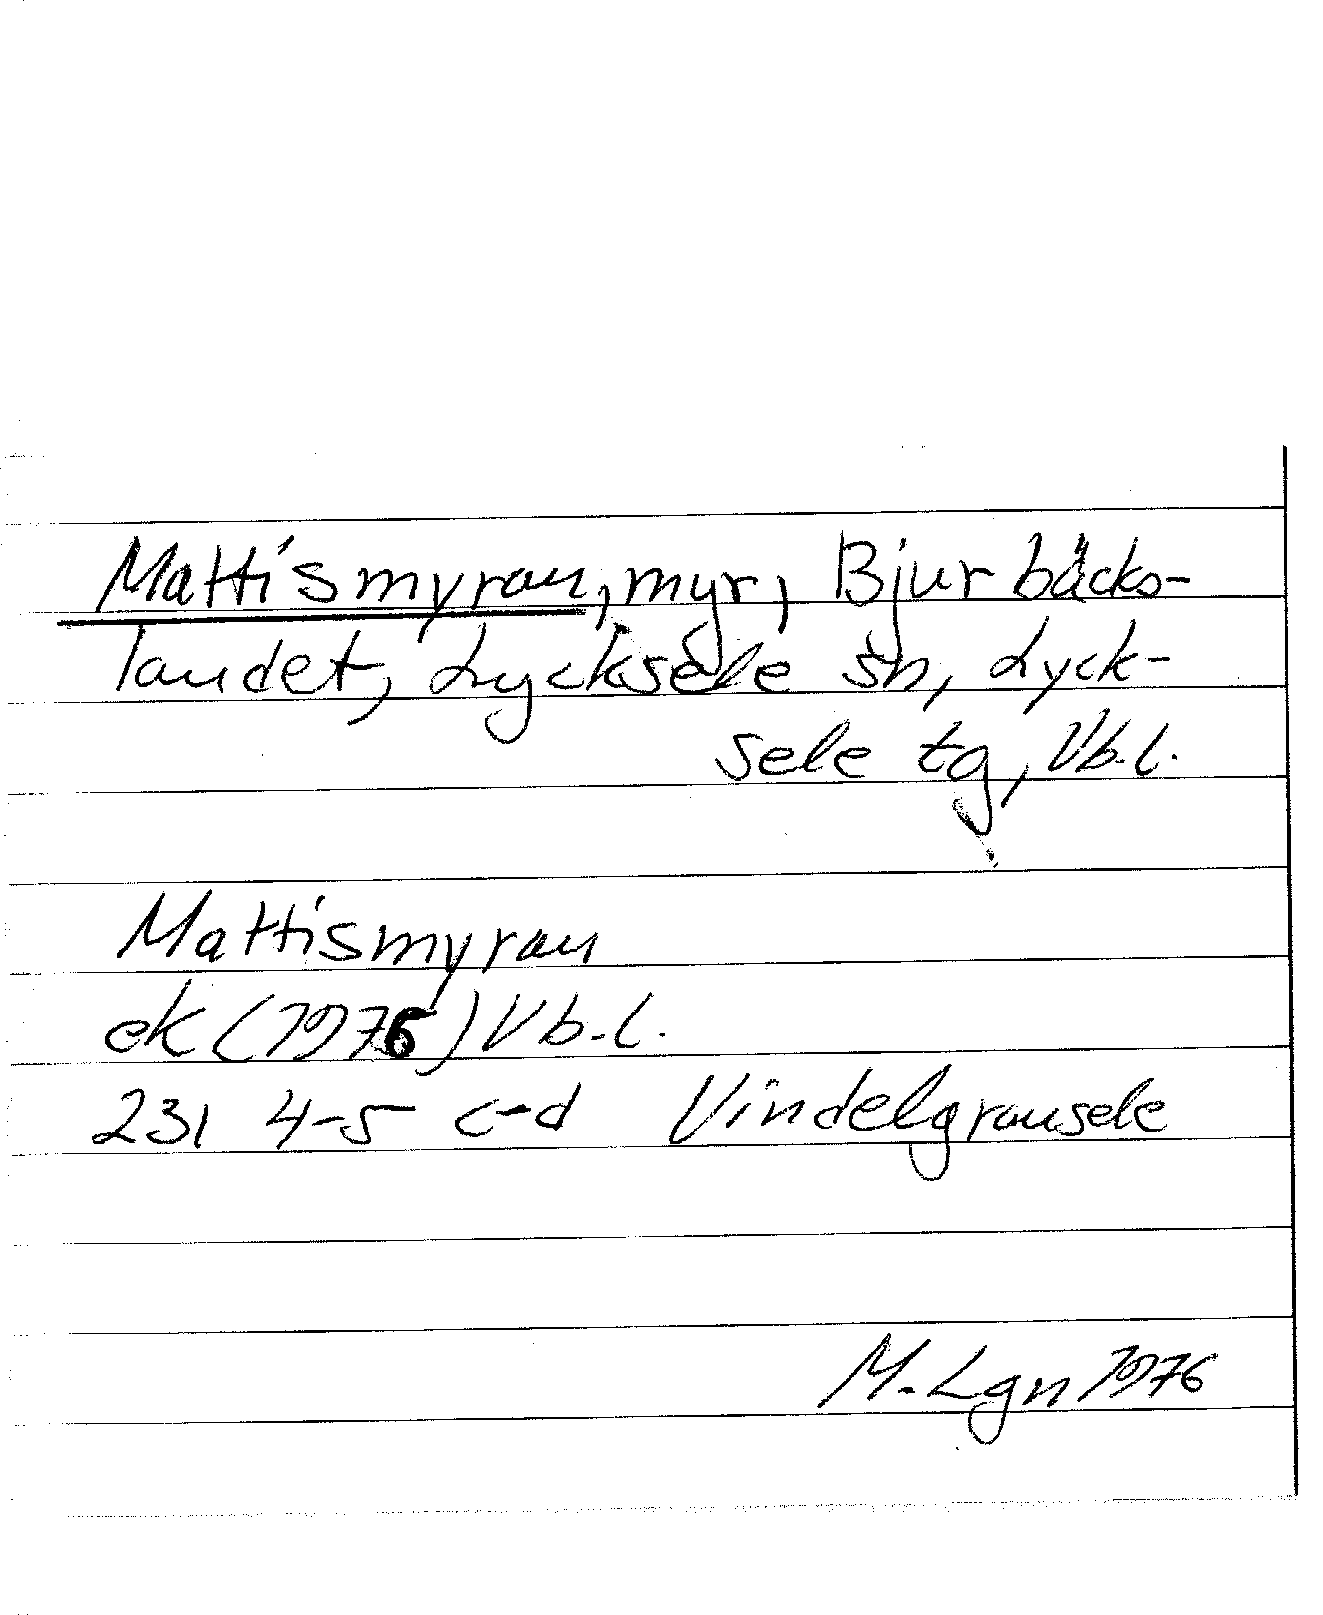 Mattismyran, myr, Bjurbäcks-
landet, Lycksele sn, Lyck-
sele tg, Vb.l.
Mattismyran
ek (1976) Vb.l.
231 4-5 c-d Vindelgransele
M. Lgn 1976